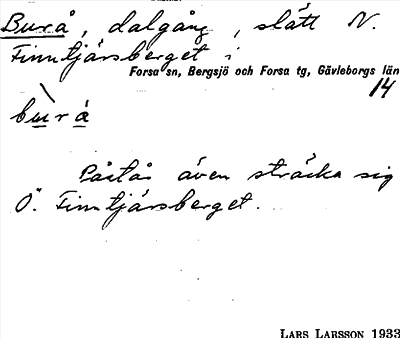 Burå, dalgång, slätt N.
Finntjärsberget i
Forsa sn, Bergsjö och Forsa tg, Gävleborgs län
14
burå
Påstås även sträcka sig
Ö. Finntjärsberget.
LARS LARSSON 1933